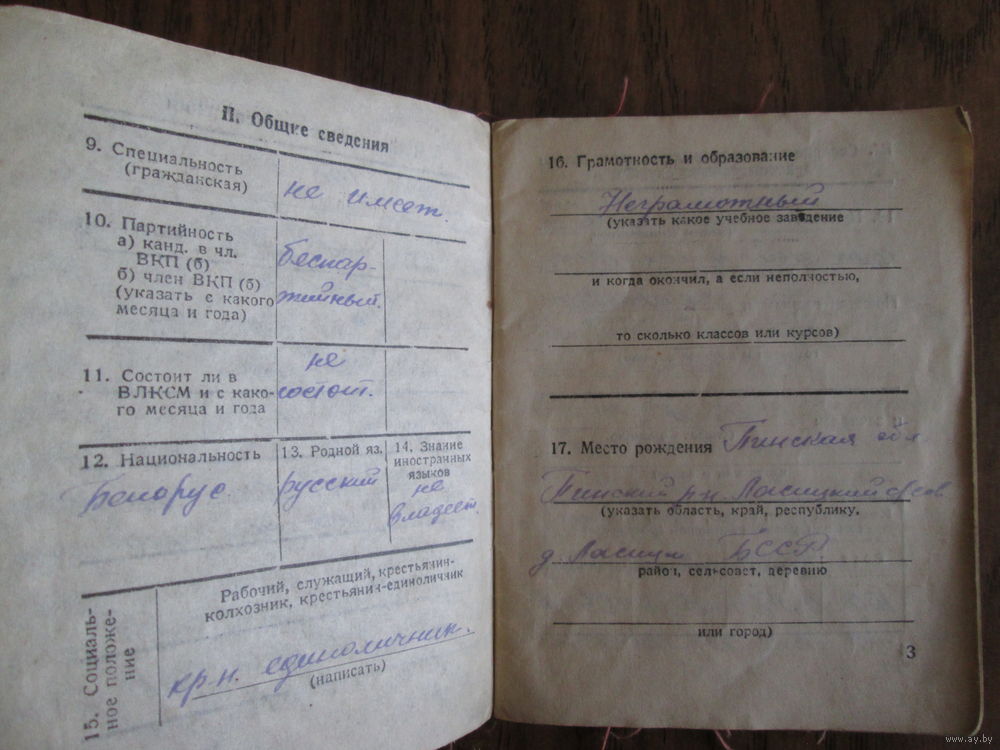 II. Общие сведения
9. Специальность
(гражданская)
не имеет.
10. Партийность
а) канд. в чл.
ВКП (б)
б) член ВКП (б)
(указать с какого
месяца и года)
беспар-
тийный.
11. Состоит ли в
ВЛКСМ и с како-
го месяца и года
не
состоит.
12. Национальность
Белорус
13. Родной яз.
русский
14. Знание
иностранных
языков
не
владеет.
15. Социаль-
ное положе-
ние
Рабочий, служащий, крестьянин-
колхозник, крестьянин-единоличник
кр.н. единоличник.
(написать)
16. Грамотность и образование
Неграмотный
(указать какое учебное заведение
и когда окончил, а если неполностью,
то сколько классов или курсов)
17. Место рождения Пинская обл
Пинский р-н. Ласицкий с/сов
(указать область, край, республику,
д. Ласицк БССР.
район, сельсовет, деревню
или город)
3
www.ay.by